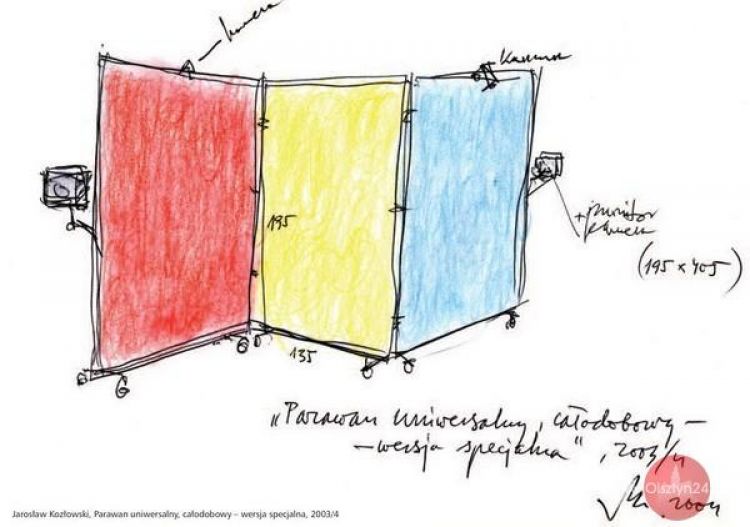 kamera
kamera
195
+ monitor
kamera
(195 x 405)
135
„Parawan uniwersalny, całodobowy –
– wersja specjalna", 2003/4
2004
Olsztyn24
Jarosław Kozłowski, Parawan uniwersalny, całodobowy – wersja specjalna, 2003/4